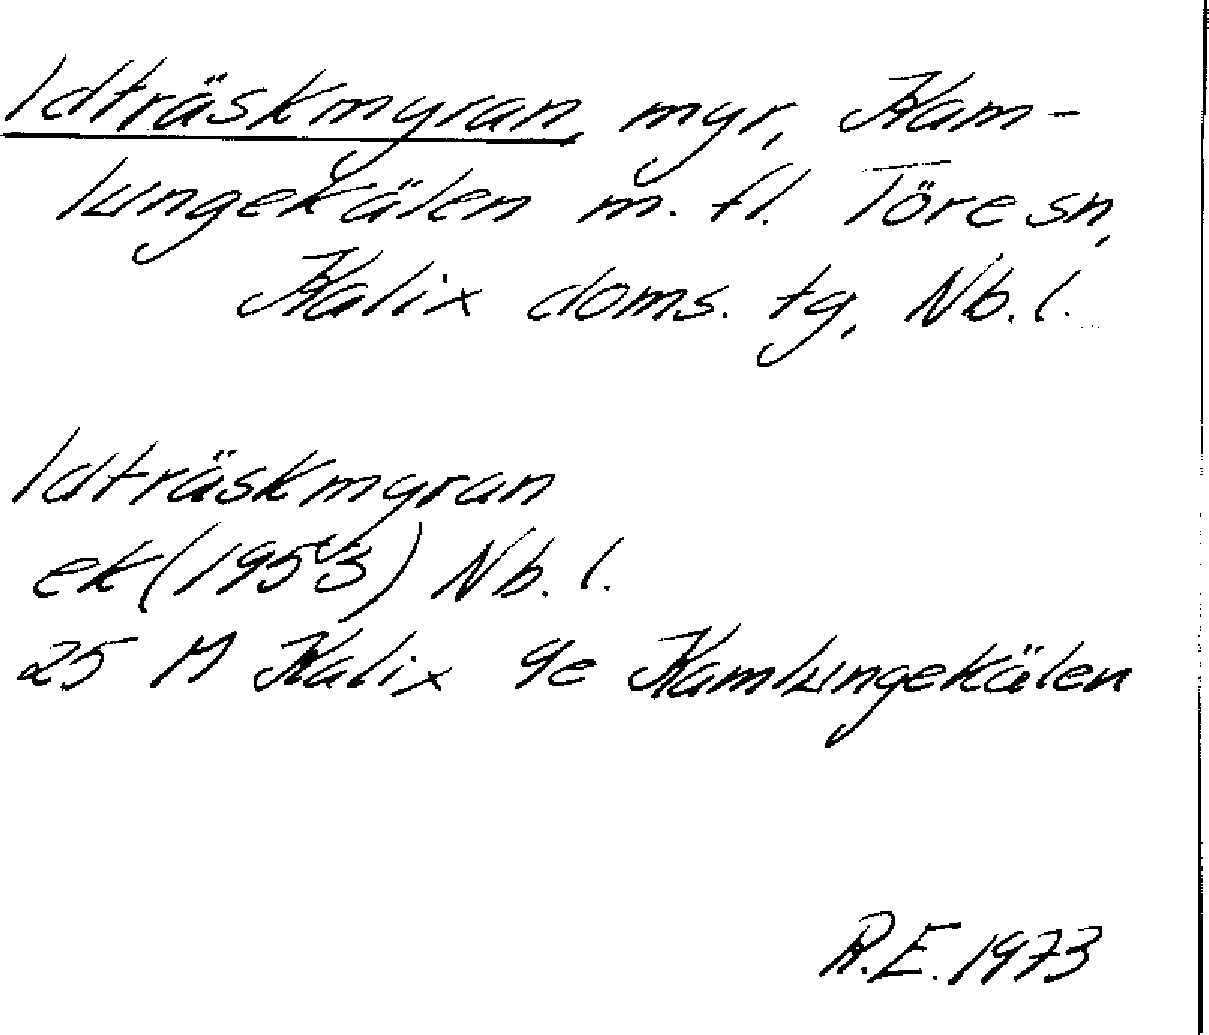 Idträskmyran, myr, Kam-
lungekälen m. fl. Töre sn,
Kalix doms. tg, Nb. l.
Idträskmyran
ek (1953) Nb. l.
25 M Kalix 9e Kamlungekälen
R.E. 1973